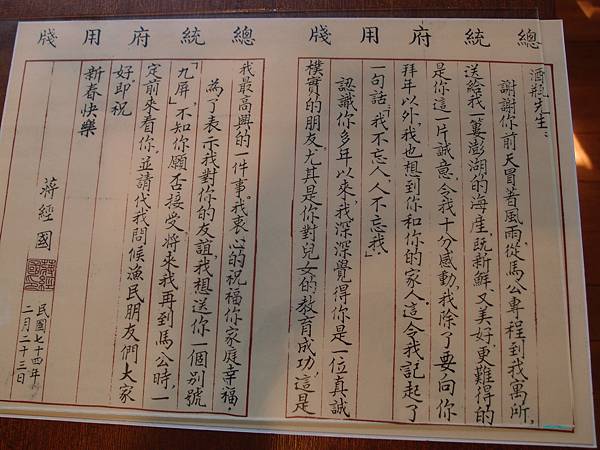 總統府用牋
總統府用牋
酒瓶先生：
謝謝你前天冒著風雨，從馬公專程到我寓所，
送給我一簍澎湖的海產，既新鮮，又美好，更難得的
是你這一片誠意，令我十分感動，我除了要向你
拜年以外，我也想到你和你的家人，這令我記起了
一句話：「我不忘人，人不忘我。」
認識你多年以來，我深深覺得你是一位真誠
樸實的朋友。尤其是你對兒女的教育成功，這是
我最高興的一件事。我衷心的祝福你家庭幸福，
為了表示我對你的友誼，我想送你一個別號
「九屏」，不知你願否接受，將來我再到馬公時，一
定前來看你，並請代我問候漁民朋友們大家
好即祝
新春快樂
蔣經國
民國七十四年
二月二十三日